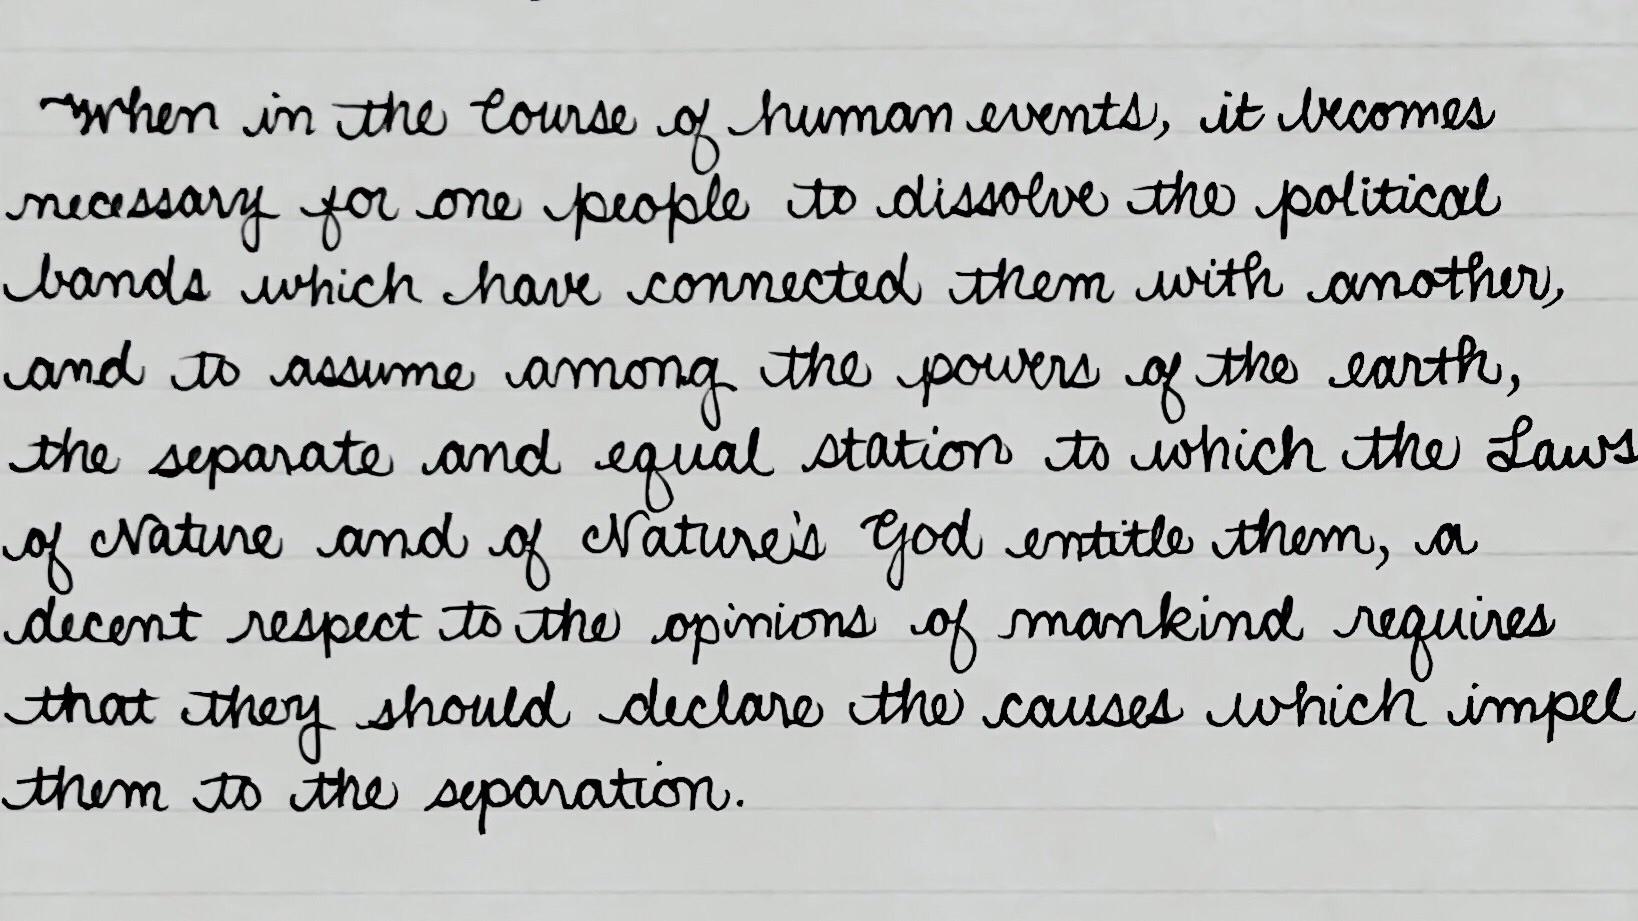 When in the Course of human events, it becomes
necessary for one people to dissolve the political
bands which have connected them with another,
and to assume among the powers of the earth,
the separate and equal station to which the Laws
of Nature and of Nature's God entitle them, a
decent respect to the opinions of mankind requires
that they should declare the causes which impel
them to the separation.